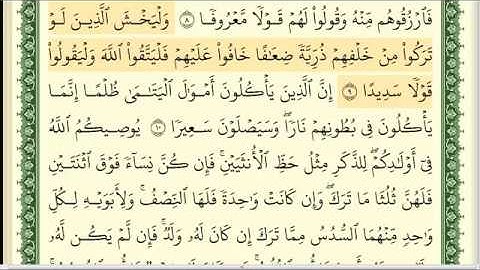 فَٱرۡزُقُوهُم مِّنۡهُ وَقُولُواْ لَهُمۡ قَوۡلٗا مَّعۡرُوفٗا ٨ وَلۡيَخۡشَ ٱلَّذِينَ لَوۡ
تَرَكُواْ مِنۡ خَلۡفِهِمۡ ذُرِّيَّةٗ ضِعَٰفًا خَافُواْ عَلَيۡهِمۡ فَلۡيَتَّقُواْ ٱللَّهَ وَلۡيَقُولُواْ
قَوۡلٗا سَدِيدًا ٩ إِنَّ ٱلَّذِينَ يَأۡكُلُونَ أَمۡوَٰلَ ٱلۡيَتَٰمَىٰ ظُلۡمًا إِنَّمَا
يَأۡكُلُونَ فِي بُطُونِهِمۡ نَارٗاۖ وَسَيَصۡلَوۡنَ سَعِيرٗا ١٠ يُوصِيكُمُ ٱللَّهُ
فِيٓ أَوۡلَٰدِكُمۡۖ لِلذَّكَرِ مِثۡلُ حَظِّ ٱلۡأُنثَيَيۡنِۚ فَإِن كُنَّ نِسَآءٗ فَوۡقَ ٱثۡنَتَيۡنِ
فَلَهُنَّ ثُلُثَا مَا تَرَكَۖ وَإِن كَانَتۡ وَٰحِدَةٗ فَلَهَا ٱلنِّصۡفُۚ وَلِأَبَوَيۡهِ لِكُلِّ
وَٰحِدٖ مِّنۡهُمَا ٱلسُّدُسُ مِمَّا تَرَكَ إِن كَانَ لَهُۥ وَلَدٞۚ فَإِن لَّمۡ يَكُن لَّهُۥ